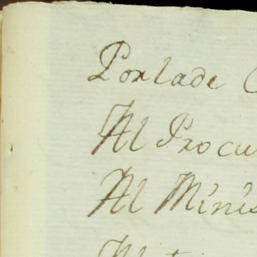 Por lade
Al Procu
Al Minis